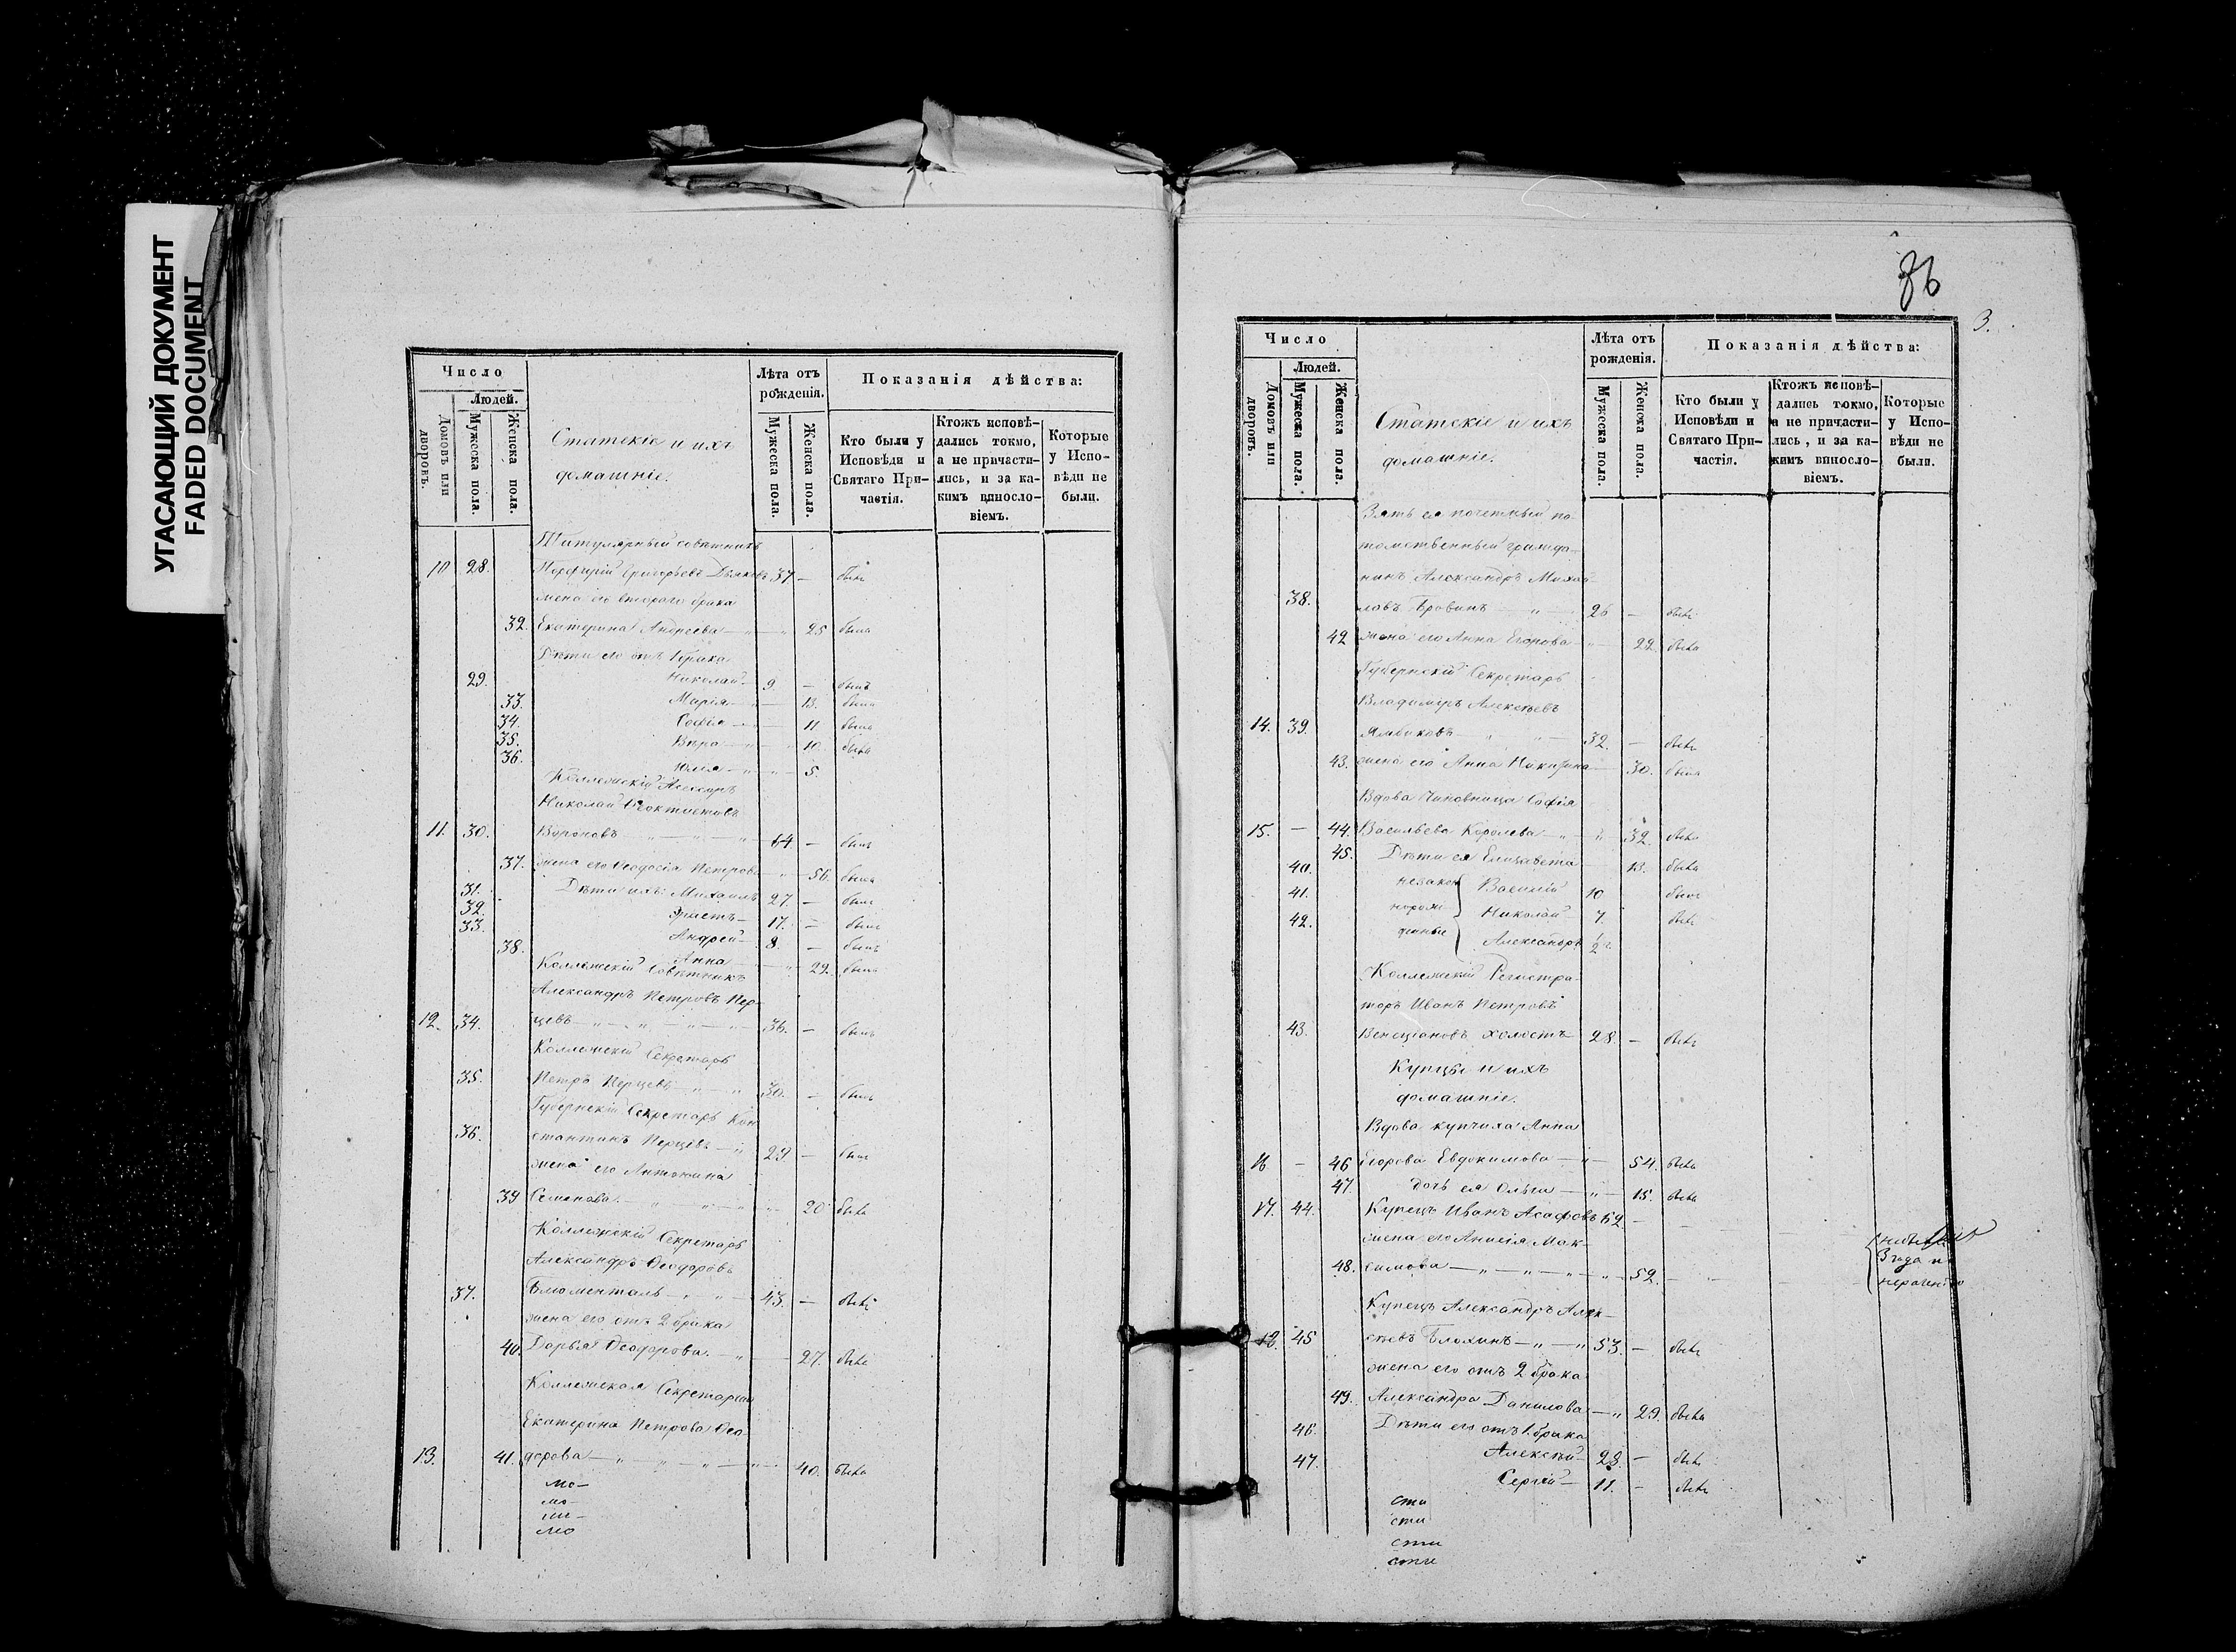 УГАСАЮЩИЙ ДОКУМЕНТ
FADED DOCUMENT
Число
Людей.
Домовъ или дворовъ.
Мужеска пола.
Женска пола.
Статскіе и ихъ
домашніе.
Лѣта отъ рожденія.
Мужеска пола.
Женска пола.
Показанія дѣйства:
Кто были у Исповѣди и Святаго Причастія.
Ктожъ исповѣдались токмо, а не причастились, и за какимъ винословіемъ.
Которые у Исповѣди не были.
Титулярный совѣтникъ
10 28. Порфирій Григорьевъ 37 — былъ
жена его втораго брака
32. Екатерина Андреева — „ 25 была
Дѣти его отъ 1 брака
29. Николай 9 — былъ
33. Марія — „ 13. была
34. Софія — „ 11 была
35. Вѣра — „ 10. была
36. Юлія — „ 5.
Коллежскій Асессоръ
Николай
11. 30. Вороновъ — „ — „ 64 — былъ
37. жена его Ѳеодосія Петрова „ 56. была
31. Дѣти ихъ: Михаилъ 27. — былъ
32. 17. — былъ
33. Андрей 8. — былъ
38. Анна — „ 22. была
Коллежскій Совѣтникъ
Александръ Петровъ Пер-
12. 34. цевъ — „ — „ — „ 36. — былъ
Коллежскій Секретарь
35. Петръ Перцевъ — „ 30. — былъ
Губернскій Секретарь Кон
36. стантинъ Перцевъ — „ 29. — былъ
жена его Антонина
39 Семенова — „ — „ 20 была
Коллежскій Секретарь
Александръ Ѳеодоровъ
37. Блюменталь — „ 43. — былъ
жена его отъ 2 брака
40. Дарья Ѳеодорова — „ 27. была
Коллежская Секретарша
Екатерина Петрова Ѳео
13. 41. дорова — „ — „ — „ 40. была
мо-
мо-
мо
36
3.
Число
Людей.
Домовъ или дворовъ.
Мужеска пола.
Женска пола.
Статскіе и ихъ
домашніе.
Лѣта отъ рожденія.
Мужеска пола.
Женска пола.
Показанія дѣйства:
Кто были у Исповѣди и Святаго Причастія.
Ктожъ исповѣдались токмо, а не причастились, и за какимъ винословіемъ.
Которые у Исповѣди не были.
Зять ея почетный по-
томственный гражда-
нинъ Александръ Михай-
38. ловъ — „ — 26 — былъ
42 жена его Анна Егорова „ 22. была
Губернскій Секретарь
Владимиръ Алексѣевъ
14. 39. — „ — „ 32. — былъ
43. жена его Анна — 30. была
Вдова Чиновница Софія
15. — 44. Васильева Королева — „ 32. была
45. Дѣти ея Елизавета — 13. была
40. незакон Василій 10 былъ
41. норож Николай 7. былъ
42. денные Александръ 1/2 г.
Коллежскій Регистра-
торъ Иванъ Петровъ
43. Венеціановъ холостъ 28. — былъ
Купцы и ихъ
домашніе.
Вдова купчиха Анна
16 — 46 Егорова Евдокимова — „ 54. была
47. дочь ея Ольга — „ 15. была
17. 44. Купецъ Иванъ Асафовъ 62 —
жена его Анисія Мак-
48. симова — „ — „ — „ 52.
3 года по
Купецъ Александръ Алек-
18. 45 сѣевъ Блохинъ — „ — „ 53. — былъ
жена его отъ 2 брака
49. Александра Данилова — „ 29. была
46. Дѣти его отъ 1. брака
47. Алексѣй — 28. — былъ
Сергѣй — 11. — былъ
сти
сти
сти
сти